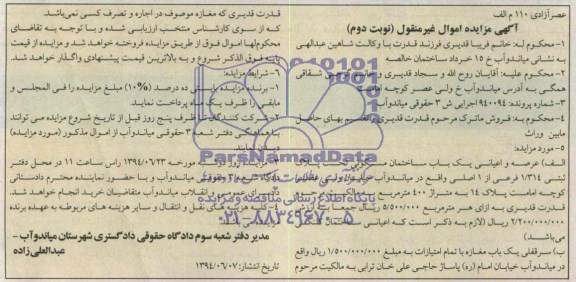 عصرآزادی ۱۱۰ م الف
آگهی مزایده اموال غیرمنقول (نوبت دوم)
۱- محکوم له: خانم فریبا قدیری فرزند قدرت با وکالت شاهین عبدالهی
به نشانی میاندوآب خ ۱۵ خرداد ساختمان خالصه
۲- محکوم علیه: آقایان روح الله و سجاد قدیری و خانم نرگس شفاقی
همگی به آدرس میاندوآب خ ولی عصر کوچه امامت
۳- شماره پرونده: ۹۴۰۰۹۴ اجرایی ش ۳ حقوقی میاندوآب
۴- محکوم به: فروش ماترک مرحوم قدرت قدیری و تقسیم بهای حاصل
مابین وراث
۵- مورد مزایده:
الف) عرصه و اعیانی یک باب ساختمان مسکونی
ثبتی ۱/۳۱۴ فرعی از ۱ اصلی واقع در میاندوآب
کوچه امامت پلاک ۱۴ به متراژ ۴۰۰ مترمربع
قدیری به ازای هر مترمربع ۵/۵۰۰/۰۰۰ ریال
۲/۲۰۰/۰۰۰/۰۰۰ ریال (لازم به ذکر است که اعیانی ساختمان
می‌باشد)
ب) سرقفلی یک باب مغازه با تمام امتیازات به مبلغ ۱/۵۰۰/۰۰۰/۰۰۰ ریال واقع
در میاندوآب خیابان امام (ره) پاساژ حاجی علی خان ترابی به مالکیت مرحوم
قدرت قدیری که مغازه موصوف در اجاره و تصرف کسی نمی‌باشد.
که از سوی کارشناس منتخب ارزیابی شده و با توجه به تقاضای
محکوم‌لها اموال فوق از طریق مزایده فروخته خواهد شد و مزایده از قیمت
پایه فوق الذکر شروع و به بالاترین قیمت پیشنهادی واگذار خواهد شد.
۶- شرایط مزایده:
۱- برنده مزایده بایستی ده درصد (۱۰%) مبلغ مزایده را فی المجلس و
مابقی را ظرف یک ماه پرداخت نمایند.
۲- شرکت کنندگان تا ظرف پنج روز قبل از تاریخ شروع مزایده می توانند
با هماهنگی دفتر شعبه ۳ حقوقی میاندوآب از اموال مذکور (مورد مزایده)
دیدن نمایند
مورخه ۱۳۹۴/۰۶/۲۳ راس ساعت ۱۱ در محل دفتر
شعبه ۳ حقوقی میاندوآب و با حضور نماینده محترم دادستانی
عمومی و انقلاب میاندوآب متقاضیان خرید انجام خواهد شد.
۴- کلیه هزینه های نقل و انتقال و سایر هزینه های مربوطه به عهده برنده
مدیر دفتر شعبه سوم دادگاه حقوقی دادگستری شهرستان میاندوآب -
عبدالعلی‌زاده
تاریخ انتشار: ۱۳۹۴/۰۶/۰۷
ParsNamadData
پایگاه اطلاع رسانی مناقصه و مزایده
۰۲۱-۸۸۳۴۹۶۷۰-۵